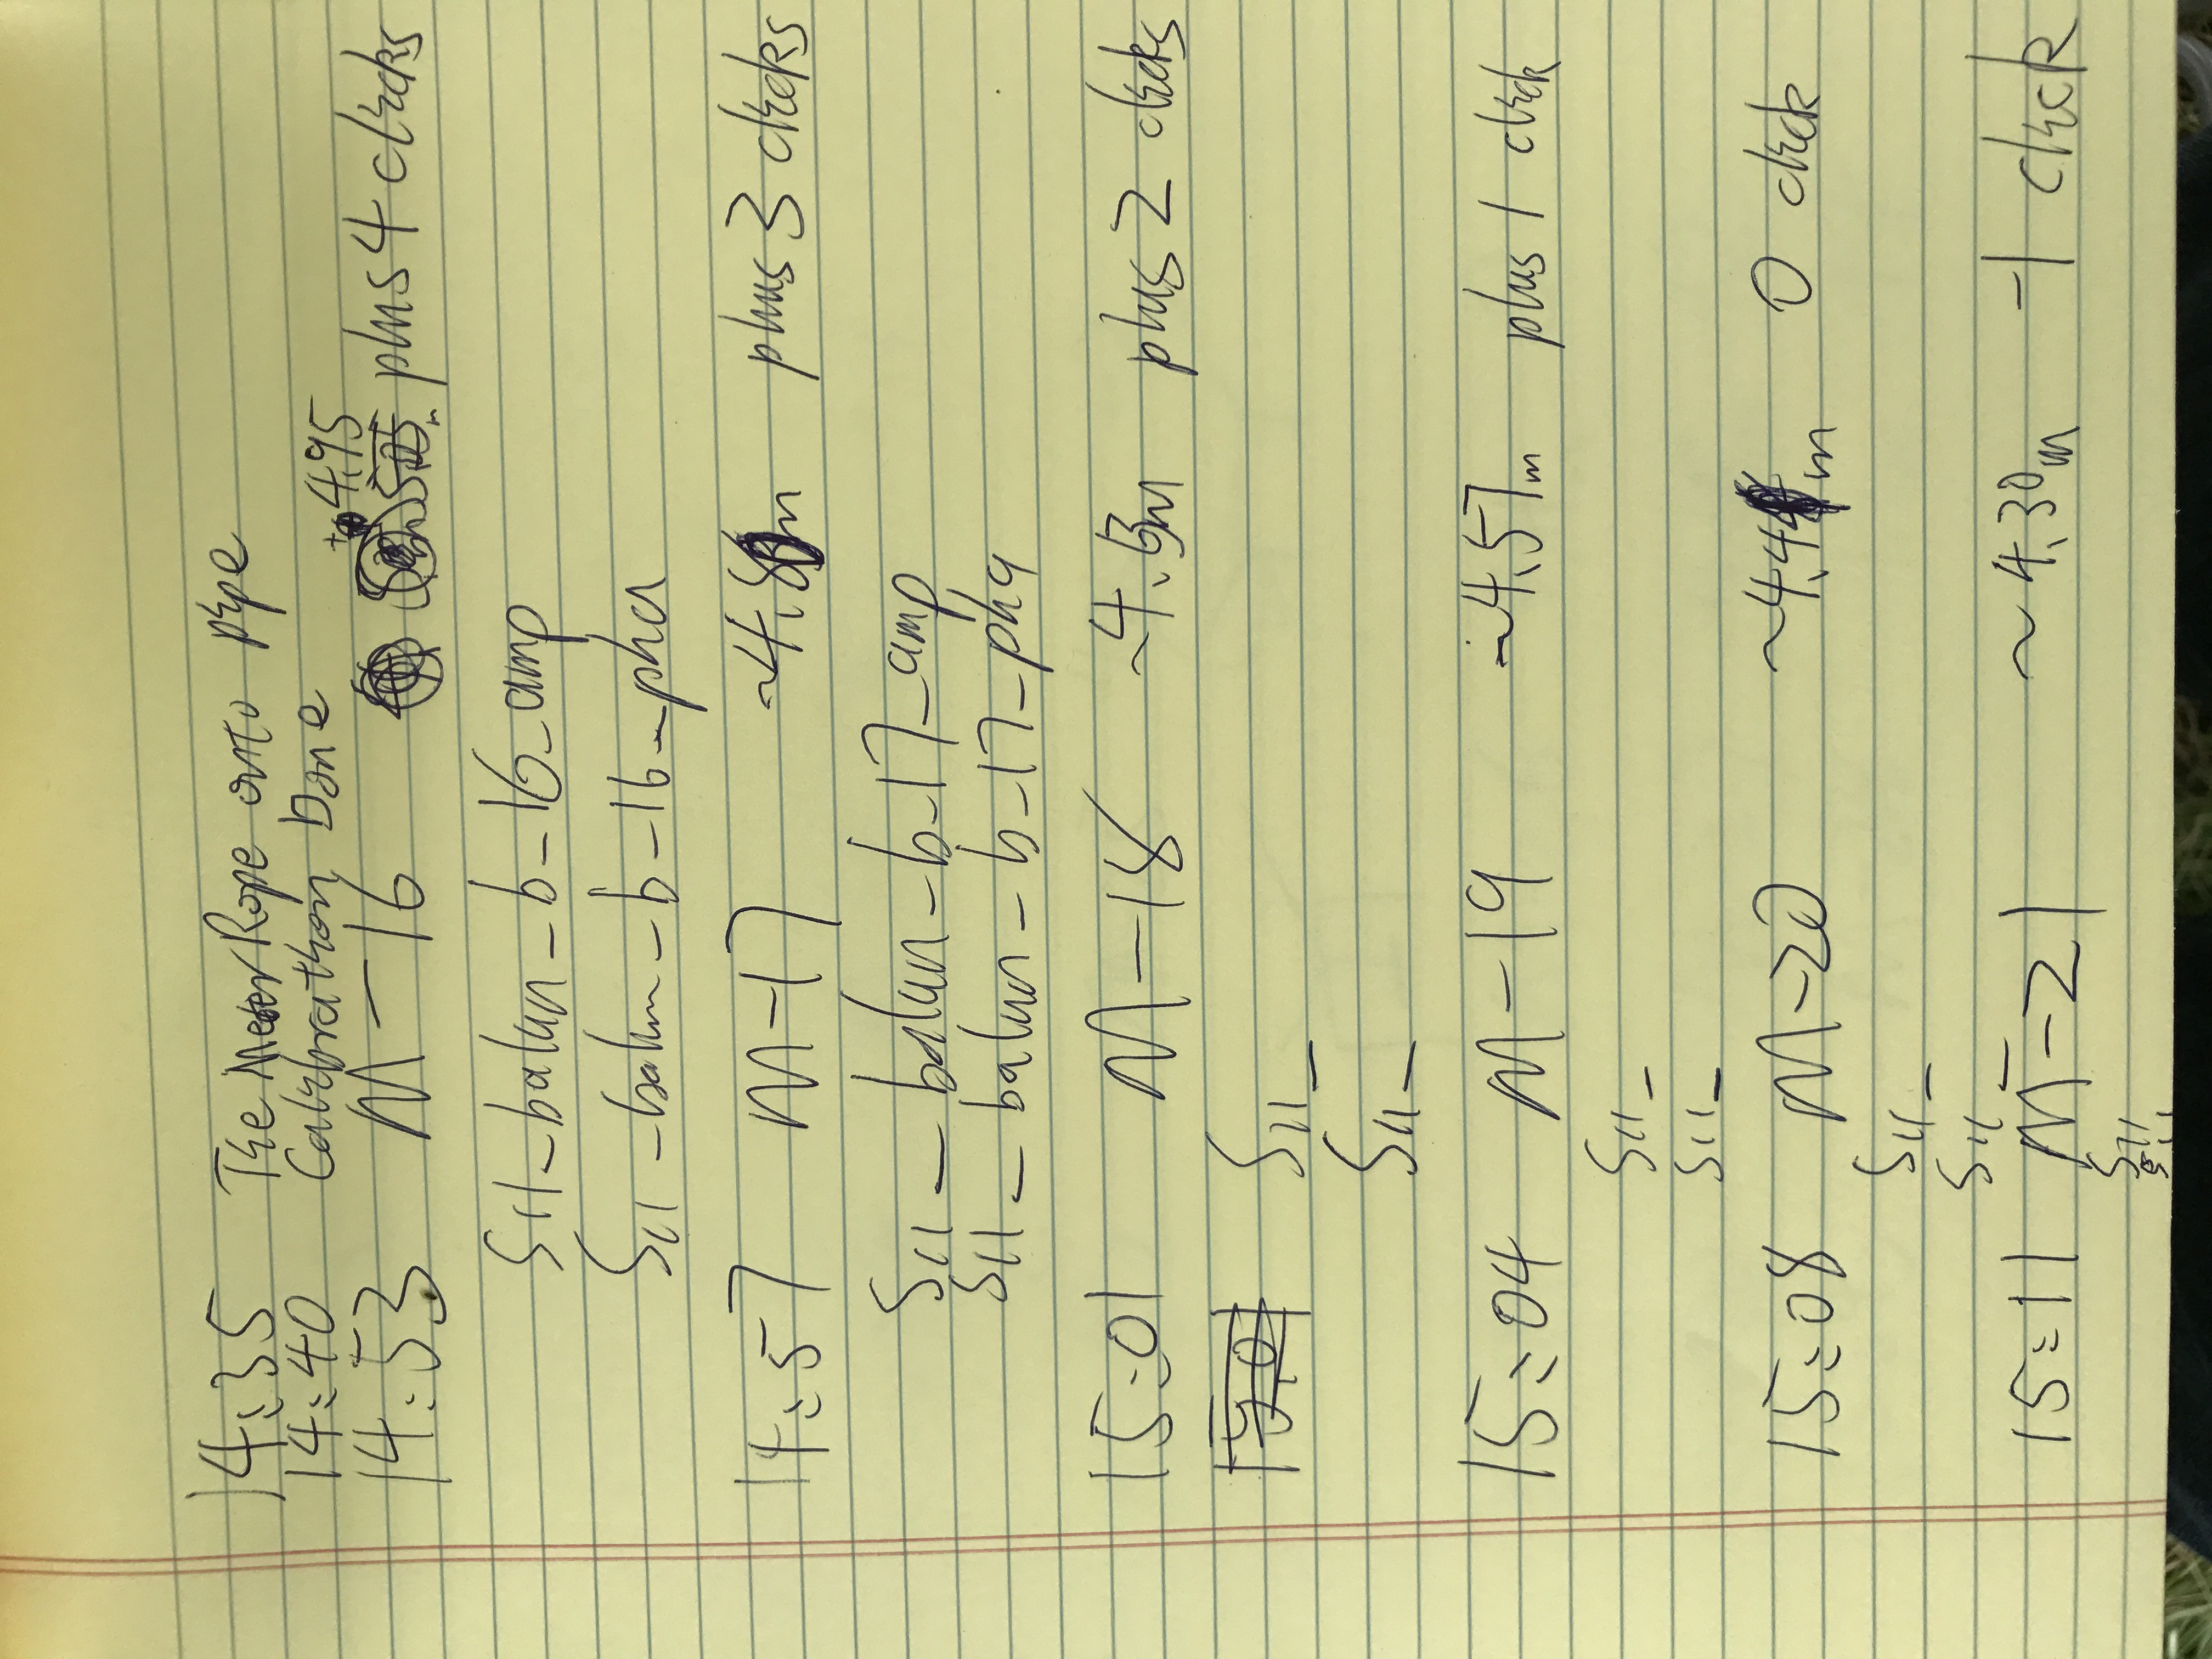 14:35 The Meter Rope onto pipe
14:40 Calibration Done
+ 4.95
14:53 M-16 m plus 4 clicks
S11-balun-b-16-amp
S11-balun-b-16-pha
14:57 M-17 m plus 3 clicks
S11-balun-b-17-amp
S11-balun-b-17-pha
15:01 M-18 plus 2 clicks
S11-
S11-
15:04 M-19 ~4.57m plus 1 click
S11-
S11-
15:08 M-20 ~4.4 m 0 click
S11-
S11-
15:11 M-21 ~4.30m -1 click
S11